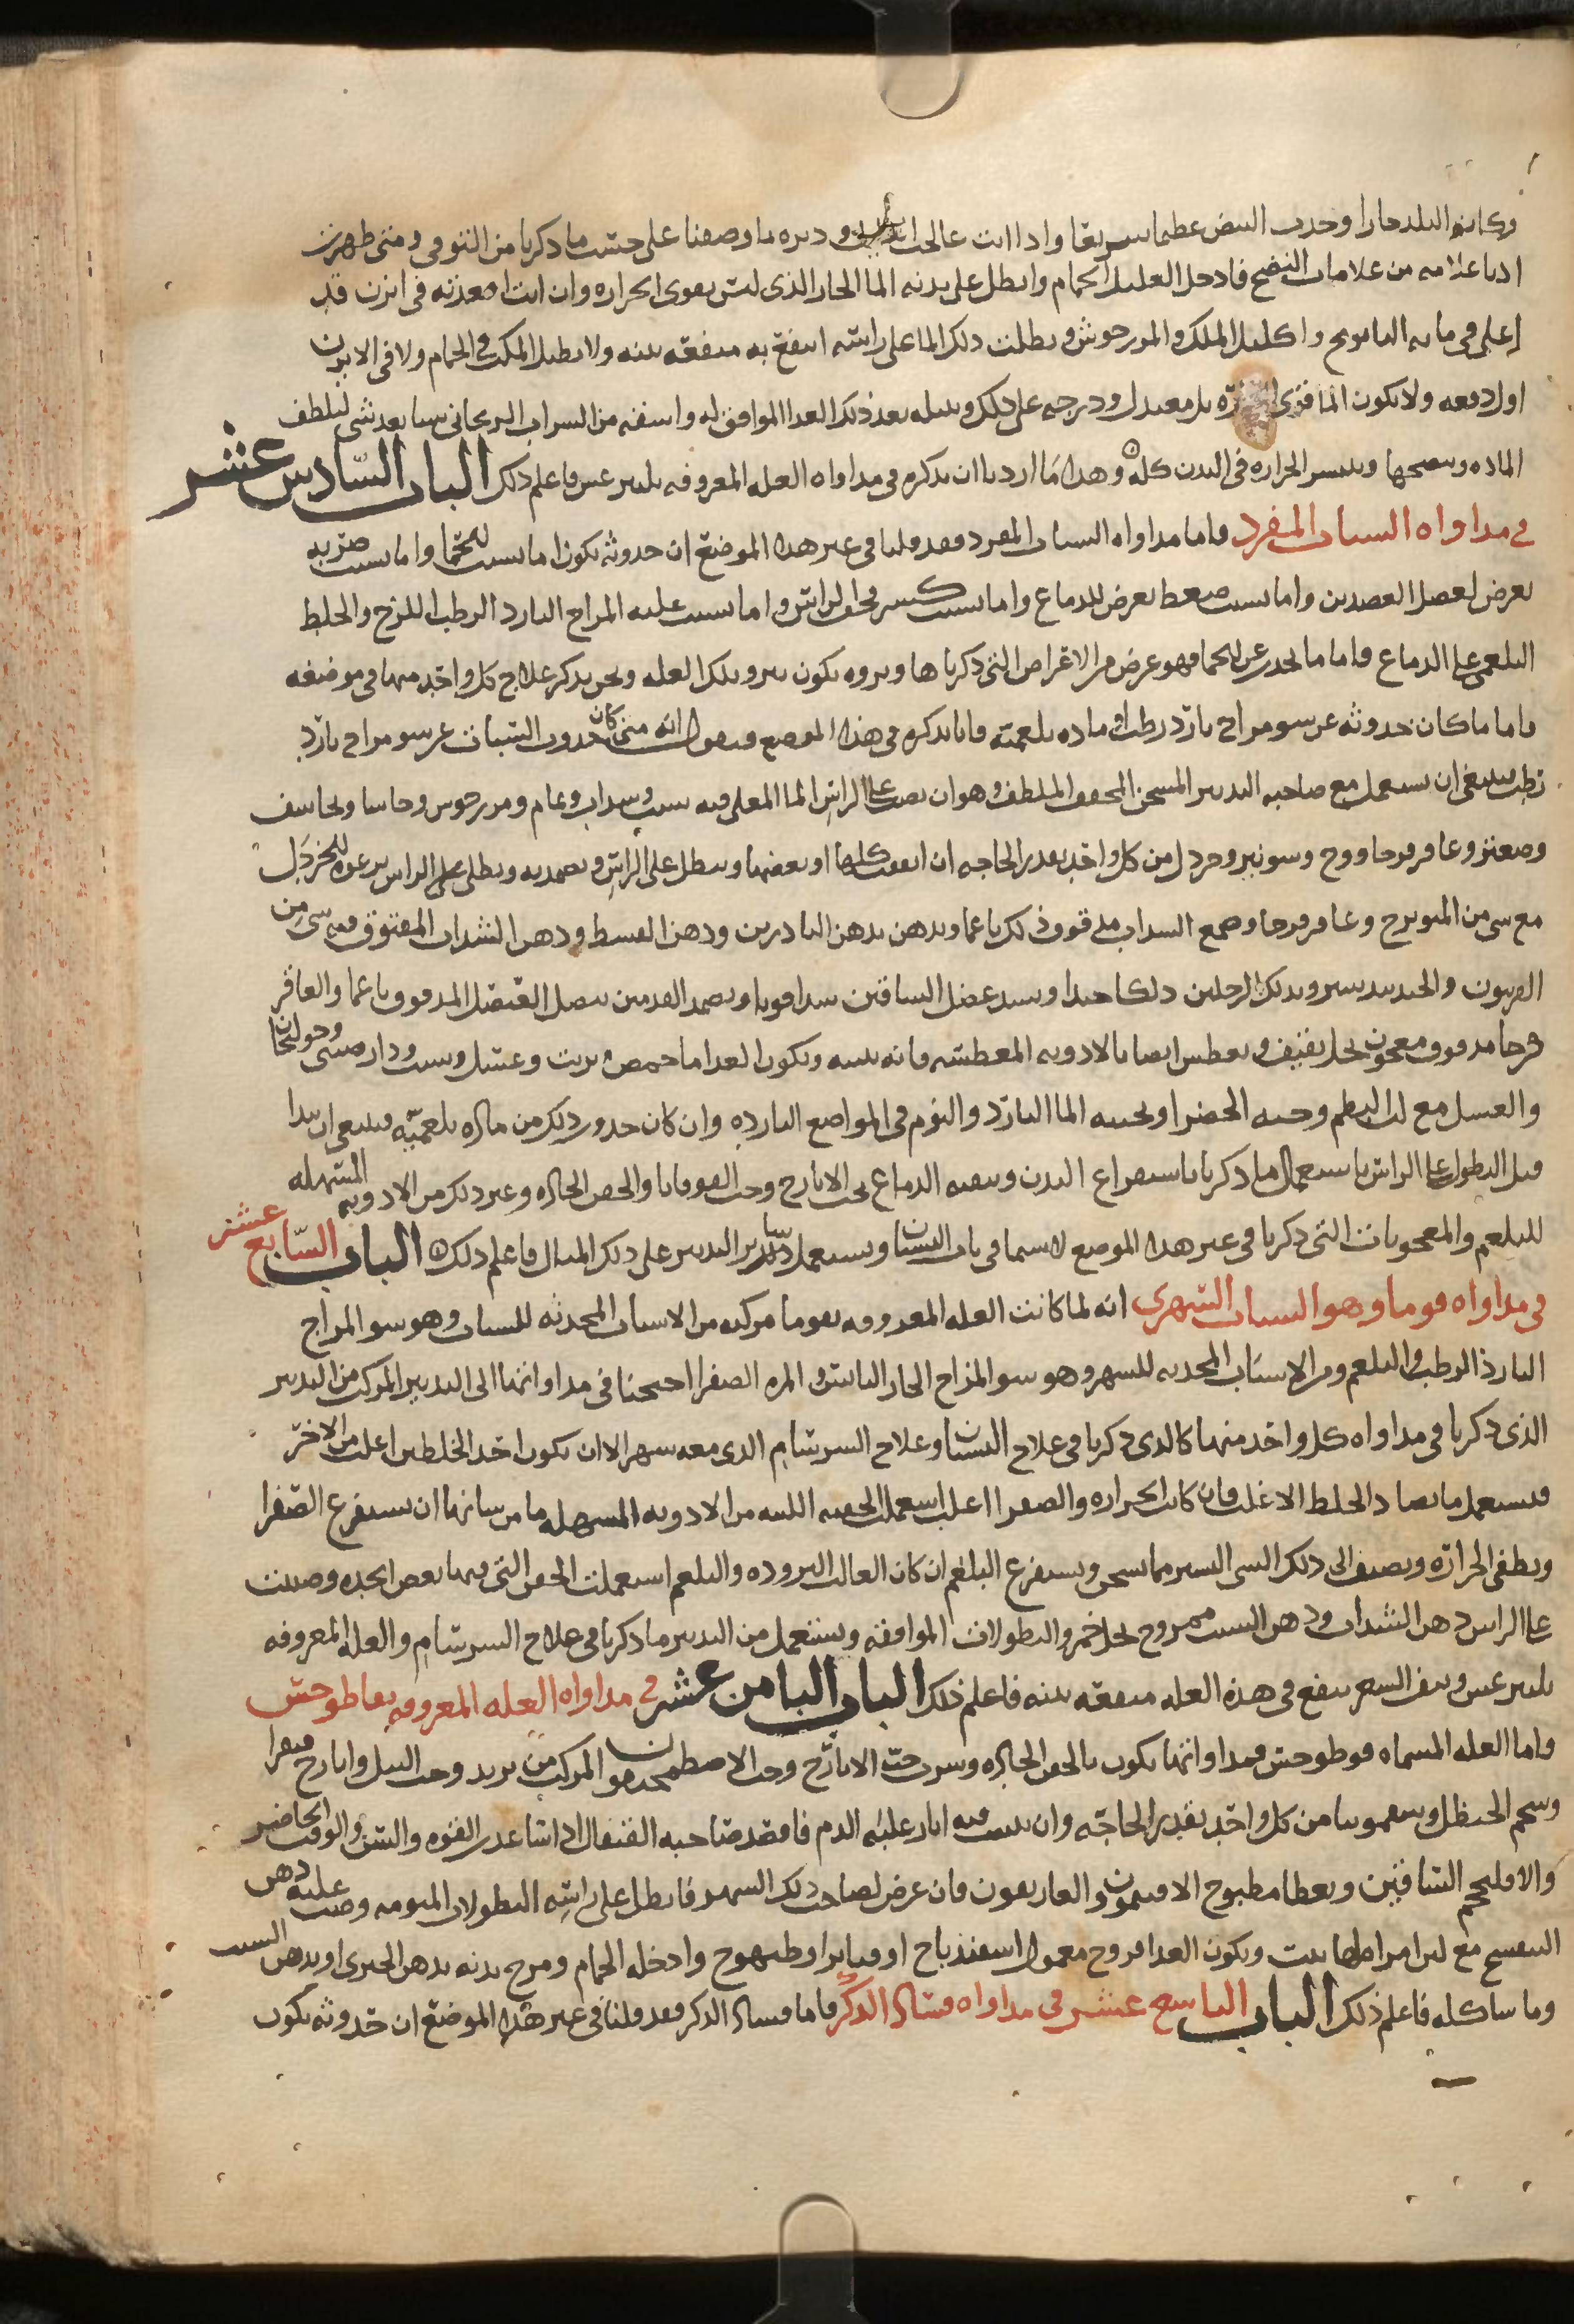 وكان البلد حارا وحدث النبض عظيما سريعا واذا انت عالجت ودبره بما وصفنا على حسب ما ذكرنا من التنوم ومتى ظهرت
ادنا علامه من علامات النضج فادخل العليل الحمام وانطل على بدنه الما الحار الذى ليس بقوى الحراره وان انت اقعدته فى ابزن قد
اغلى فى مايه البابونج واكليل الملك والمرزجوش ونطلت ذلك الما على راسه انتفع به منفعه بينه ولا يطيل المكث فى الحمام ولا فى الابزن
اول دفعه ولا يكون الما قوى الحراره بل معتدل ودرجه على ذلك وبعد ذلك الغذا الموافق له واسقه من الشراب الريحانى شيا بعد شى ليلطف
الماده وينضجها وينشر الحراره فى البدن كله وهذا ما اردنا ان نذكره فى مداواه العله المعروفه بليثرغس فاعلم ذلك الباب السادس عشر
فى مداواه السبات المفرد واما مداواه السبات المفرد فقد قلنا فى غير هذا الموضع ان حدوثه يكون اما بسبب الحما واما بسبب ضربه
تعرض لعضل الصدغين واما بسبب ضغط يعرض للدماغ واما بسبب كسر قحف الراس واما بسبب غلبه المزاج البارد الرطب اللزج والخلط
البلغمى على الدماغ فاما ما يحدث عن الحما فهو عرض من الاعراض التى ذكرناها وبروه يكون ببرو تلك العله ونحن نذكر علاج كل واحد منها فى موضعه
فاما ما كان حدوثه عن سو مزاج بارد رطب او ماده بلغميه فانا نذكره فى هذا الموضع فنقول انه متى كان حدوث السبات عن سو مزاج بارد
رطب فينبغى ان يستعمل مع صاحبه التدبير المسخن المجفف الملطف وهو ان يصب على الراس الما المغلى فيه شبت وسذاب ونمام ومرزجوش وحاشا
وصعتر وعاقرقرحا ووج وشونيز وخردل من كل واحد بقدر الحاجه ان اتفقت كلها او بعضها وينطل على الراس ويضمد به ويطلى على الراس الخردل
مع شى من الميويزج وعاقرقرحا وصمغ السذاب مدقوق ذلك ناعما ويدهن بدهن الناردين ودهن القسط ودهن السذاب المفتوق فيه شى من
الفربيون والجندبيدستر ويدلك الرجلين دلكا جيدا ويشد عضل الساقين شدا قويا ويضمد القدمين ببصل العنصل المدقوق ناعما والعاقر
قرحا مدقوق معجون بخل ثقيف ويعطس ايضا بالادويه المعطسه فانه ينبه ويكون الغذا ما حمص بزيت وعسل وشبت ودارصينى وخولنجان
والعسل مع لب البطم وحبه الخضرا ويجنبه الما البارد والنوم فى المواضع البارده وان كان حدوث ذلك من ماده بلغميه فينبغى ان يبدا
قبل النطول على الراس باستعمال ما ذكرنا باستفراغ البدن وتنقيه الدماغ بحب الايارج وحب القوقايا والحقن الحاره وغير ذلك من الادويه المسهله
للبلغم والمعجونات التى ذكرنا فى غير هذا الموضع لا سيما فى باب النسيان ويستعمل ساير التدبير على ذلك المثال فاعلم ذلك الباب السابع عشر
فى مداواه قوما وهو السبات السهرى انه لما كانت العله المعروفه بقوما مركبه من الاسباب المحدثه للسبات وهو سو المزاج
البارد الرطب والبلغم ومن الاسباب المحدثه للسهر وهو سو المزاج الحار اليابس والمره الصفرا احتجنا فى مداواتها الى التدبير المركب من التدبير
الذى ذكرنا فى مداواه كل واحد منها كالذى ذكرنا فى علاج النسيان وعلاج السرسام الذى معه سهر الا ان يكون احد الخلطين اغلب من الاخر
فيستعمل ما يضاد الخلط الاغلب فان كانت الحراره والصفرا اغلب استعملت الحقنه اللينه من الادويه المسهله ما من شانها ان يستفرغ الصفرا
ويطفى الحراره ويضيف الى ذلك الشى اليسير مما يسخن ويستفرغ البلغم ان كان الغالب البروده والبلغم استعملت الحقن التى فيها بعض الحده وصببت
على الراس دهن السذاب ودهن الشبت ممزوج بخل خمر والنطولات الموافقه ويستعمل من التدبير ما ذكرنا فى علاج السرسام والعله المعروفه
بليثرغس ونتف الشعر ينفع فى هذه العله منفعه بينه فاعلم ذلك الباب الثامن عشر فى مداواه العله المعروفه بقاطوخس
واما العله المسماه قوطوخس فمداواتها يكون بالحقن الحاده وشرب حب الايارج وحب الاصطمحيقون المركب من تربد وحب النيل وايارج فيقرا
وشحم الحنظل وسقمونيا من كل واحد بقدر الحاجه وان تبينت فيه اثار غلبه الدم فافصد صاحبه القيفال اذا ساعدت القوه والسن والوقت الحاضر
والا فاحجم الساقين ويعطا مطبوخ الافتيمون والغاريقون فان عرض لصاحب ذلك السهر فانطل على راسه النطولات المنومه وصب عليه دهن
البنفسج مع لبن امراه لها بنت ويكون الغذا فروج معمول اسفيذباج او قنابرا وطيهوج وادخله الحمام ومرخ بدنه بدهن الخيرى او بدهن الشبت
وما شاكله فاعلم ذلك الباب التاسع عشر فى مداواه فساد الذكر فاما فساد الذكر فقد قلنا فى غير هذا الموضع ان حدوثه يكون